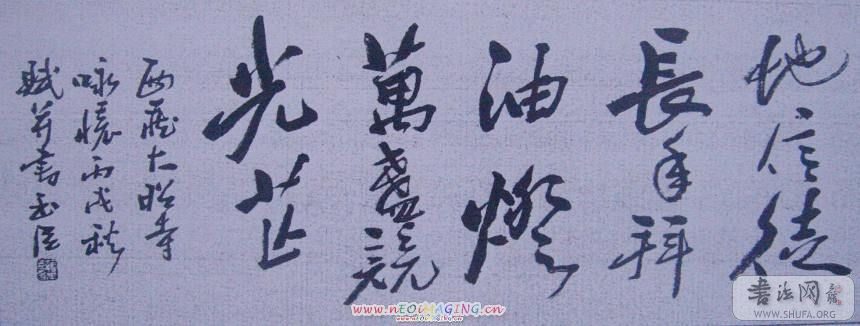 地信徒
長年拜
油燈
萬盞競
光芒
西藏大昭寺
咏懷丙戌秋
賦并書玉臣
www.nEOiMAGING.cn
书法网
WWW.SHUFA.ORG